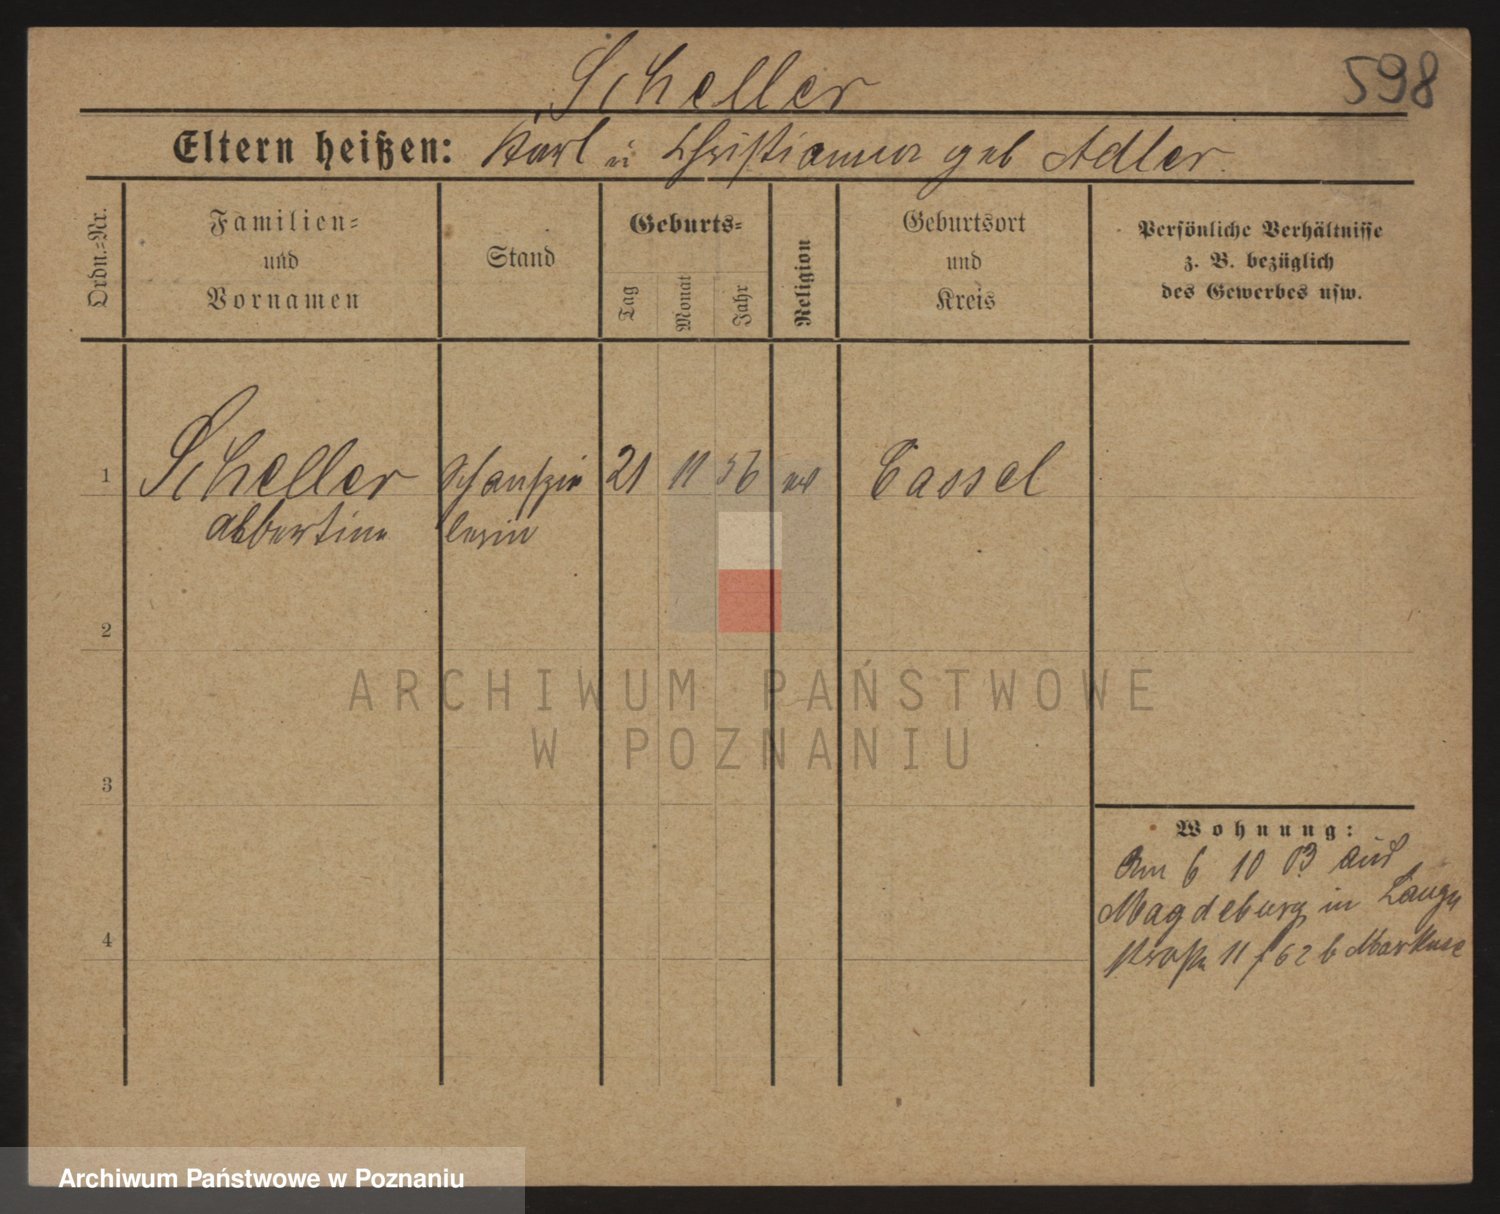 598
Scheller
Eltern heißen: Karl u Christianna geb Adler.
Ordn.=Nr.
Familien=
und
Vornamen
Stand
Geburts=
Tag
Monat
Jahr
Religion
Geburtsort
und
Kreis
Persönliche Verhältnisse
z. B. bezüglich
des Gewerbes usw.
1 Scheller Schauspie 21 11 56 ev Cassel
Albertine lerin
2
ARCHIWUM PAŃSTWOWE
W POZNANIU
3
Wohnung:
Am 6 10 03 aus
Magdeburg in Lange
straße 11 f 62 b Markuse
4
Archiwum Państwowe w Poznaniu